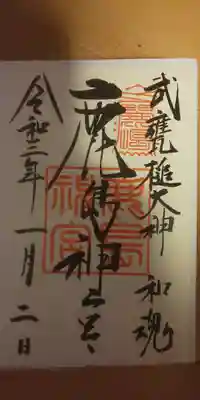 武甕槌大神 和魂
鹿島神宮
令和三年一月二日